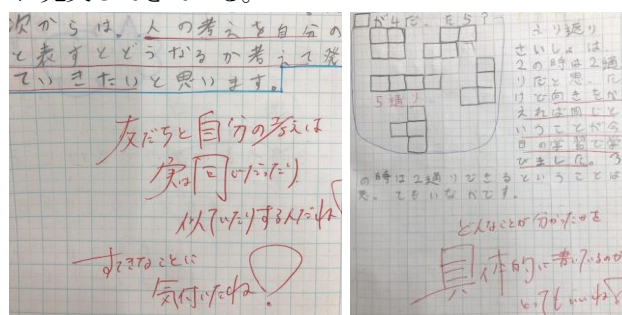 次からは、人の考えを自分の
と表すとどうなるか考えて発
ていきたいと思います。
友だちと自分の考えは
実は同じだったり
似ていたりするんだね
すてきなことに
気付いたね!
□が4だ。だら5?
5通り
ふり返り
さいしょは
2の時は2通
りだと思った
けど向きをか
えれば同じと
いうことが今
日の学習で学
びました。3
の時は2通りできるということは
思ってもいなべです。
どんなことが分かったかを
具体的に書いているのが
とってもいいね